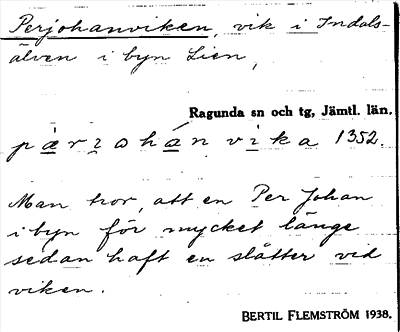 Perjohanviken, vik i Indals-
älven i byn Lien,
Ragunda sn och tg, Jämtl. län.
pärjohánvika 1352.
Man tror, att en Per Johan
i byn för mycket länge
sedan haft en slåtter vid
viken.
BERTIL FLEMSTRÖM 1938.